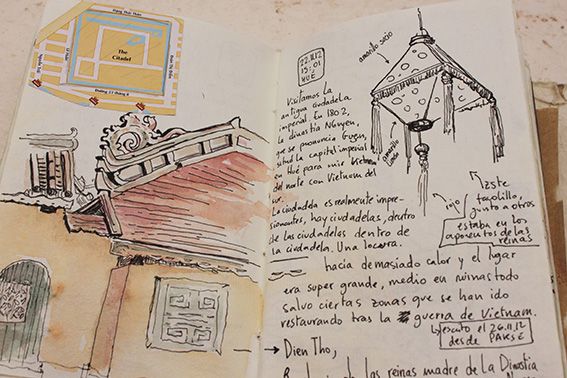 Đặng Thái Thân
The
Citadel
Đường 23 Tháng 8
22.11.12
15:01
HUE
Visitamos la
antigua ciudadela
imperial. En 1802,
la dinastía Nguyen,
que se pronuncia Guen,
situó la capital imperial
en Hué para unir Vietnam
del norte con Vietnam del
sur.
La ciudadela es realmente impre-
sionante, hay ciudadelas, dentro
de las ciudadelas dentro de
la ciudadela. Una locura.
hacía demasiado calor y el lugar
era super grande, medio en ruinas todo
salvo ciertas zonas que se han ido
restaurando tras la guerra de Vietnam.
escrito el 26.11.12
desde PAKSÉ
→ Dien Tho,
las reinas madre de la Dinastía
amarillo sucio
amarillo
rojo
Este
farolillo,
junto a otros
estaba en los
aposentos de las
reinas